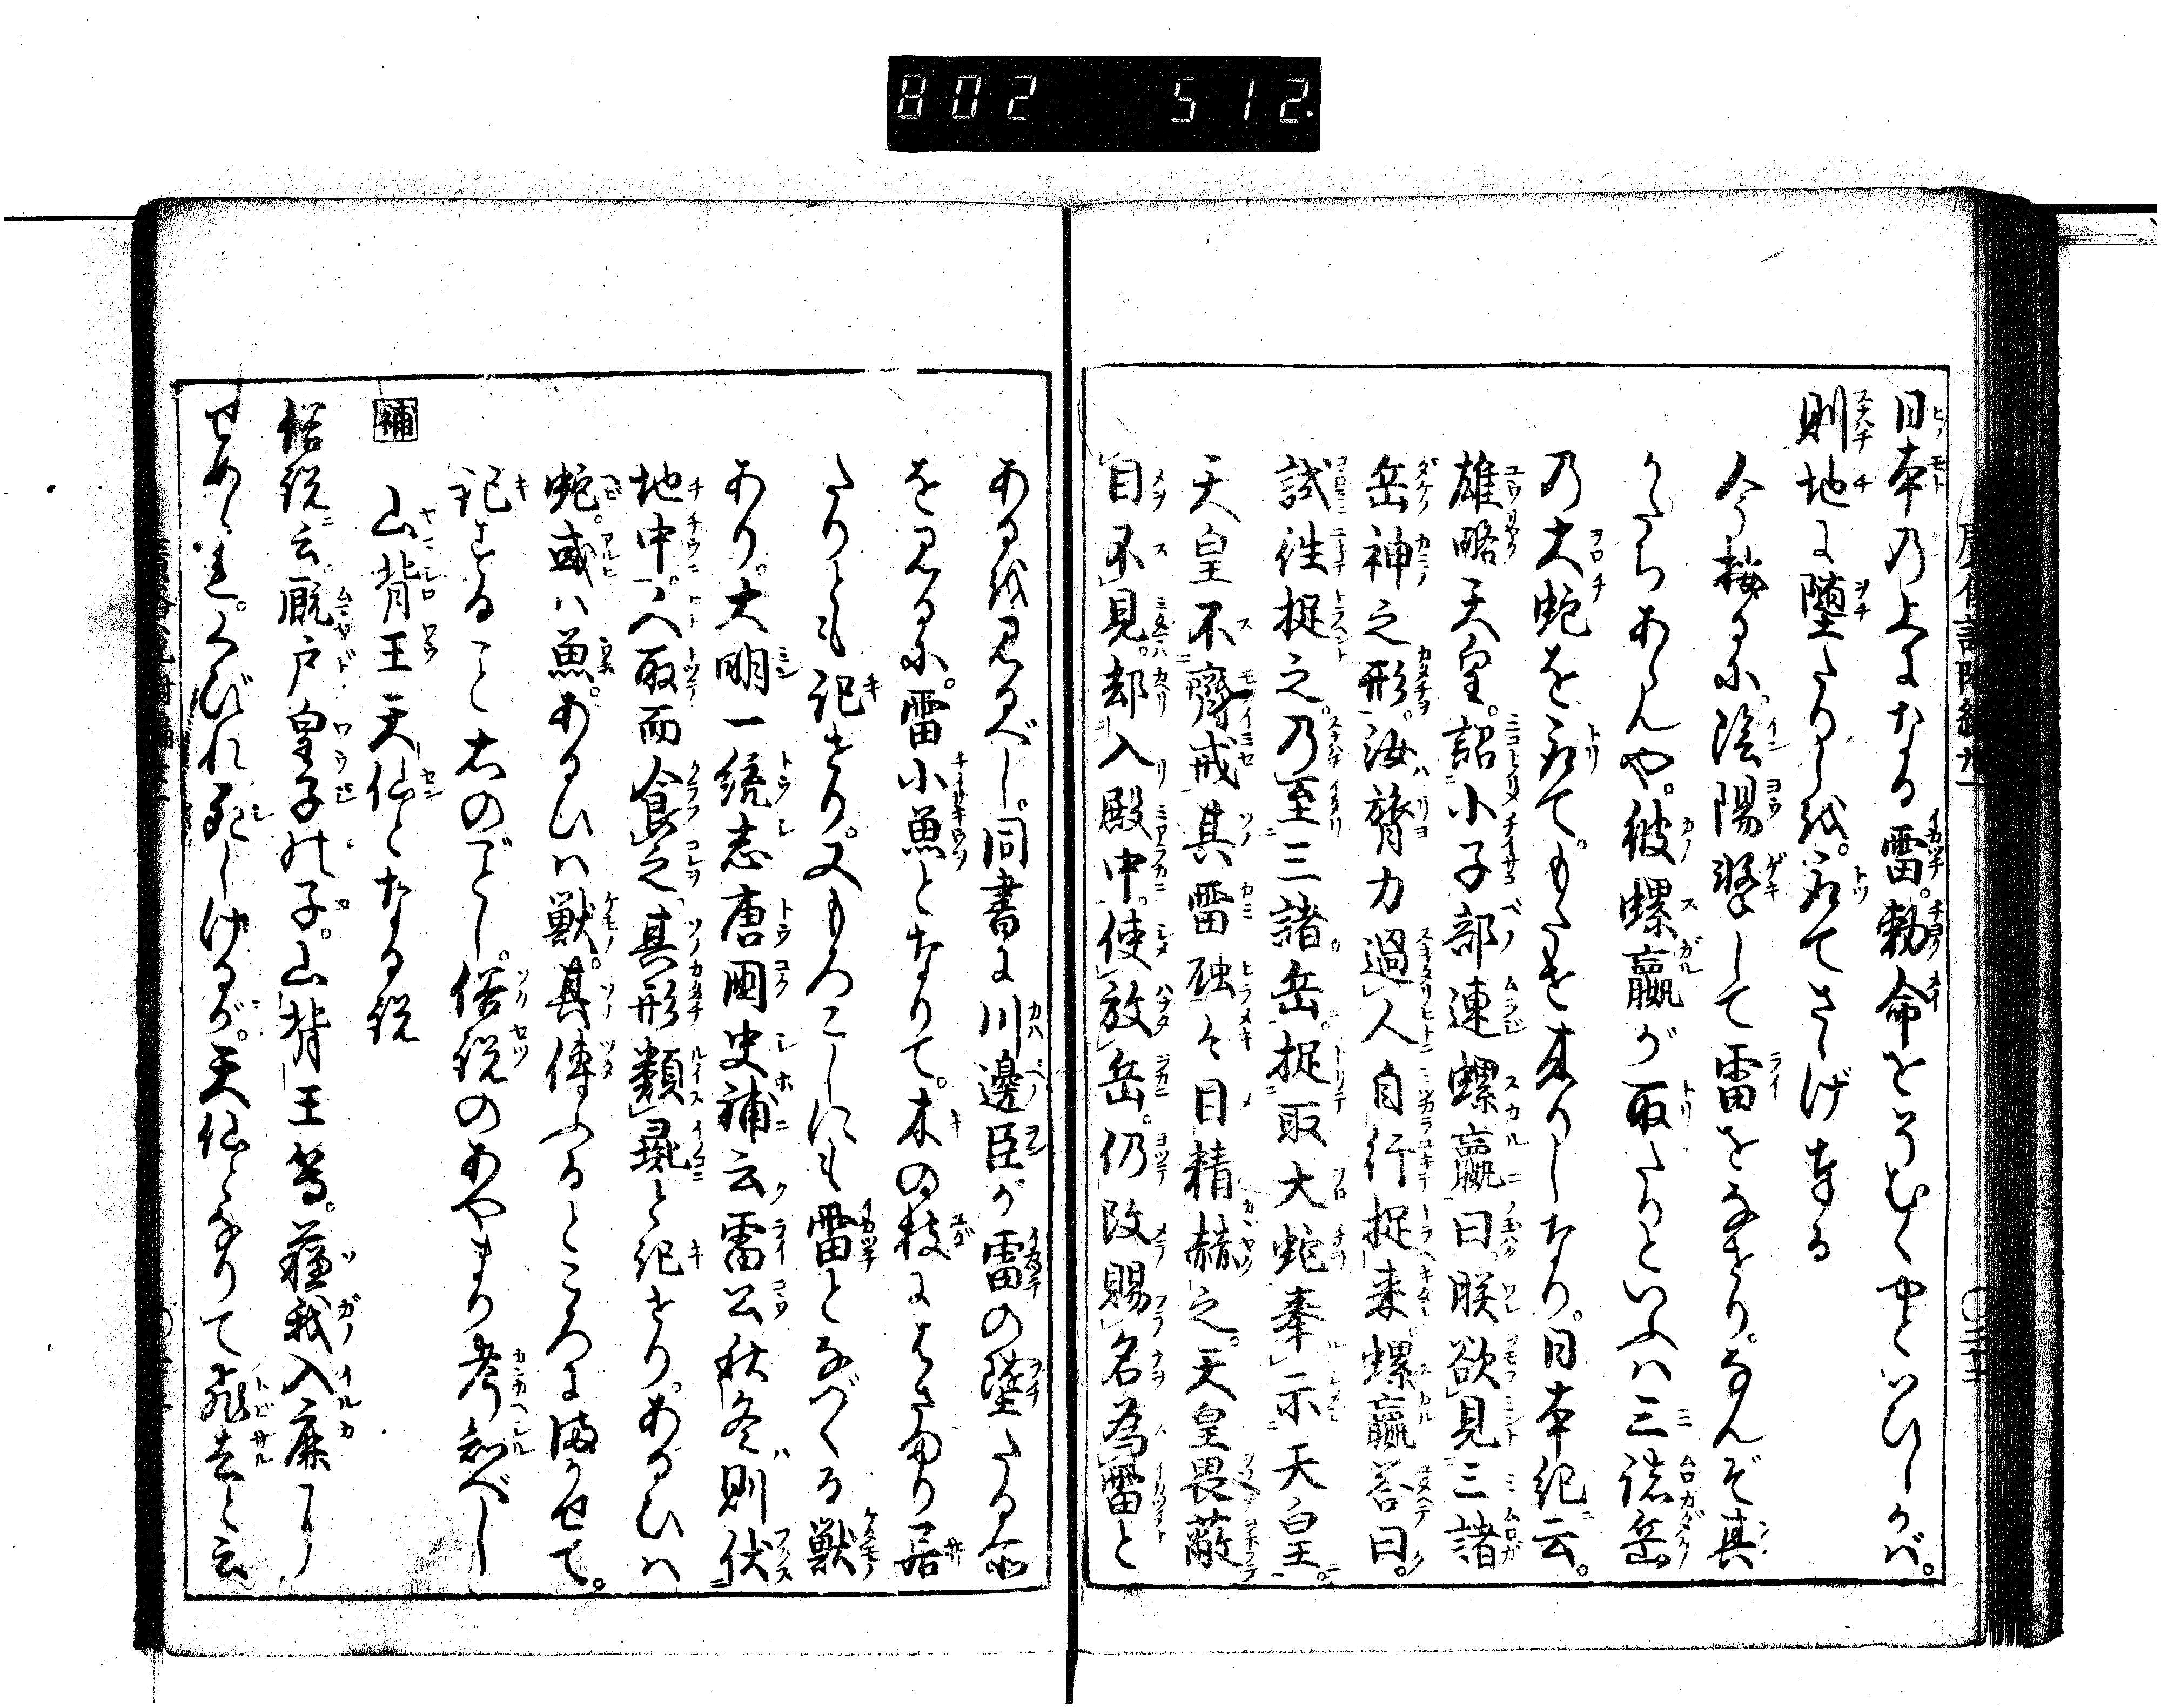 802 512.
日本乃上になる雷。勅命をそむくやといひしかば。
則地に堕たりしを。取てさゝげ奉る
今按るに。陰陽激して雷をなせり。なんぞ其
かたちあらんや。彼蜾蠃が取たりといふハ三諸岳
乃大蛇を取て。もたせ来りしなり。日本紀云。
雄略天皇。詔小子部連蜾蠃曰。朕欲見三諸
岳神之形。汝膂力過人自行捉来。蜾蠃答曰。
試往捉之。乃至三諸岳。捉取大蛇奉示天皇。
天皇不齋戒其雷虺々目精赫之。天皇畏蔽
目不見。却入殿中。使放岳。仍改賜名為雷と
ある或见るべし。同書に川邊臣が雷の墜たる
を见るに。雷小魚となりて。木の枝にはさまり居
たりとも記せり。又もろこしにも雷となづくる獣
あり。大明一統志唐國史補云雷公秋冬則伏
地中。人取而食之。其形類彘と紀せり。あるひハ
蛇。或ハ魚。あるひハ獣。其傳ふるところにまかせて。
記すること右のごとし。俗説のあやまり考知べし
補 山背王天仙となる説
俗説云。厩戸皇子の子。山背王等。蘇我入鹿に
せめられ。くびれ死しけるが。天仙となりて飛去と云